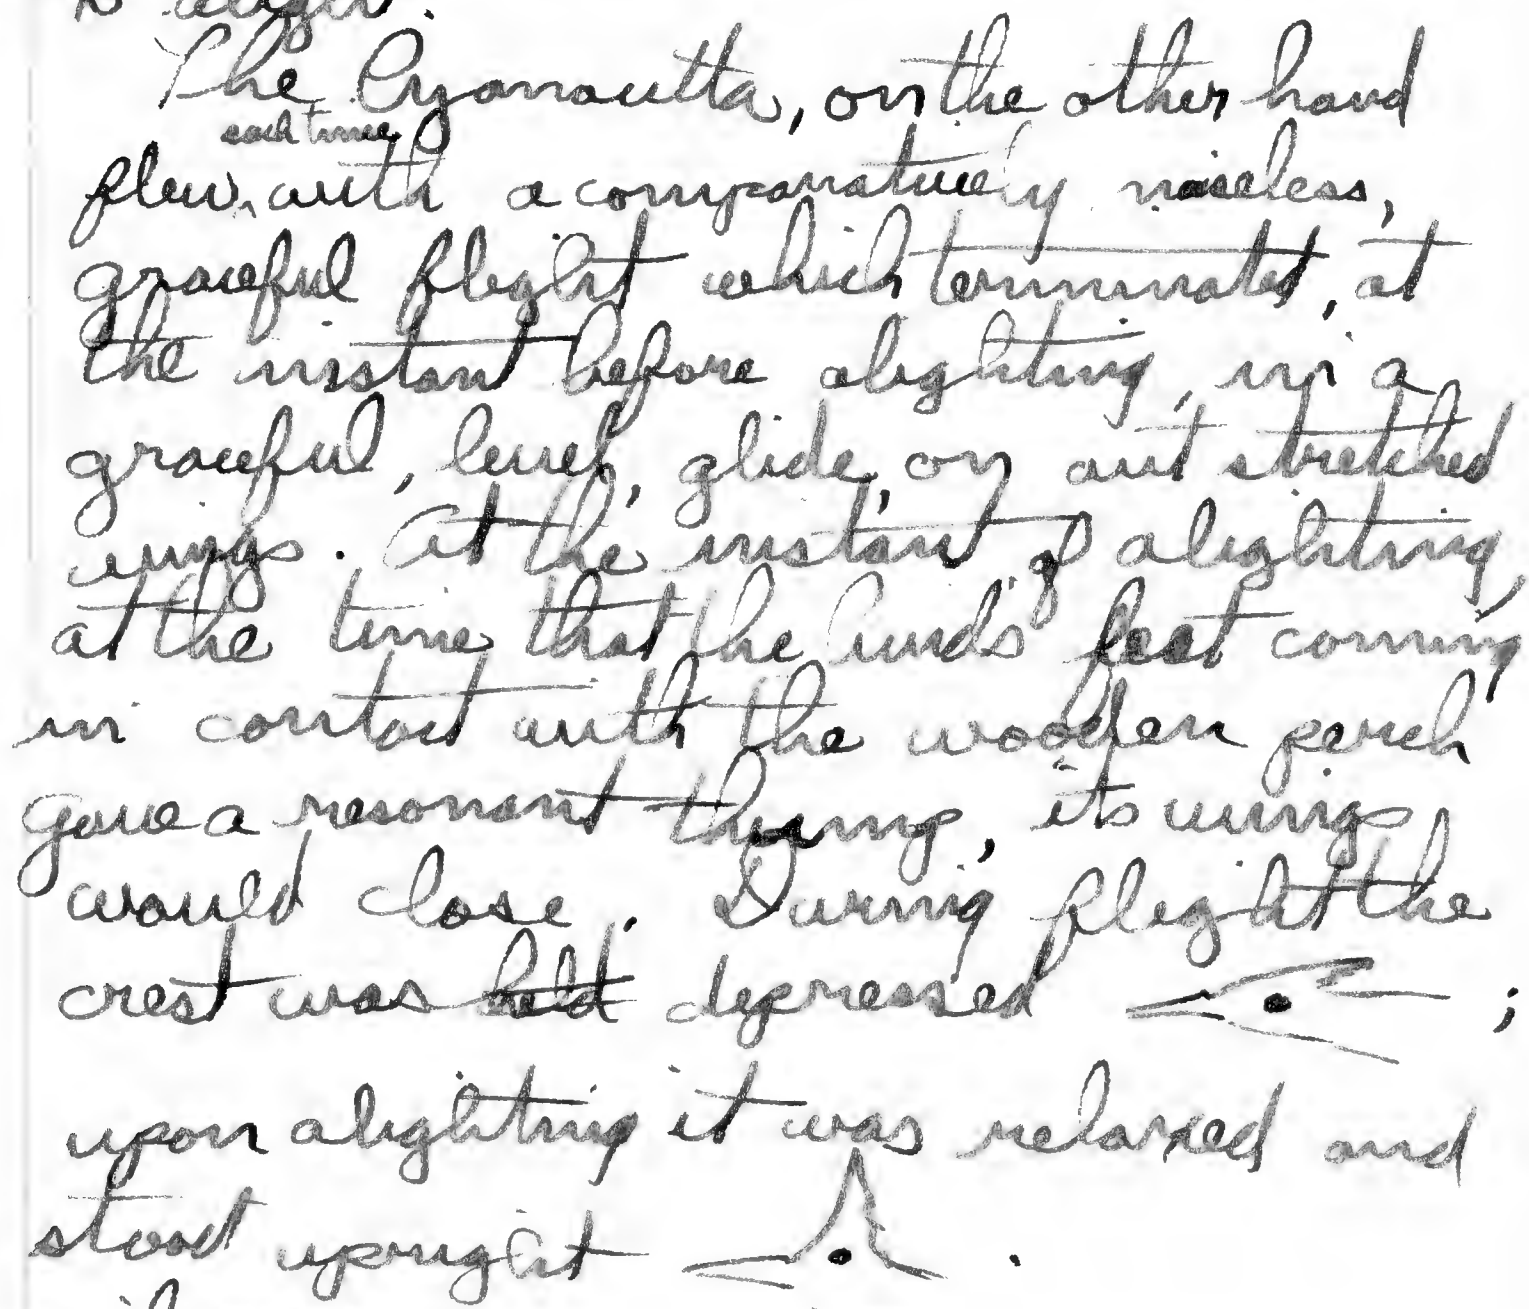 The Cyanocitta, on the other hand
each time
flew with a comparatively noiseless,
graceful flight which terminated, at
the instant before alighting, in a
graceful, level, glide, on out stretched
wings. At the instant of alighting,
at the time that the birds' feet coming
in contact with the wooden perch
gave a resonant thump, its wings
would close. During flight the
crest was held depressed ;
upon alighting it was relaxed and
stood upright .